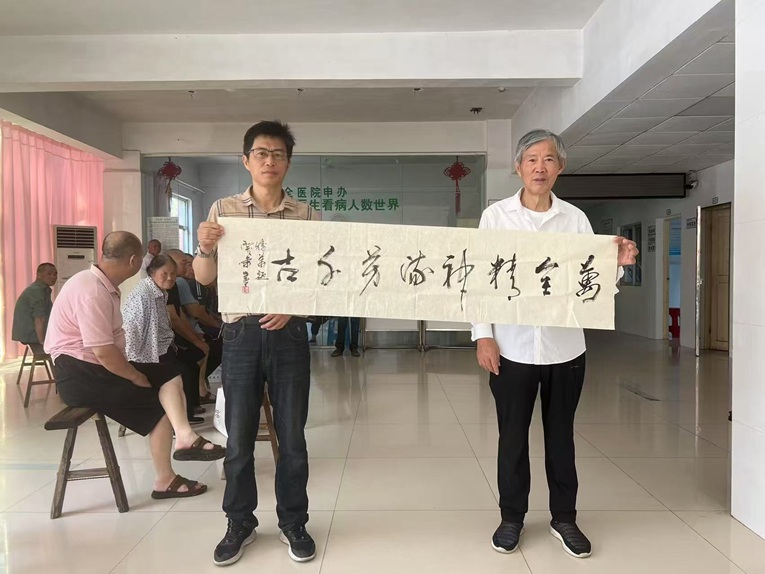 全医院申办
生看病人数世界
萬全精神流芳千古